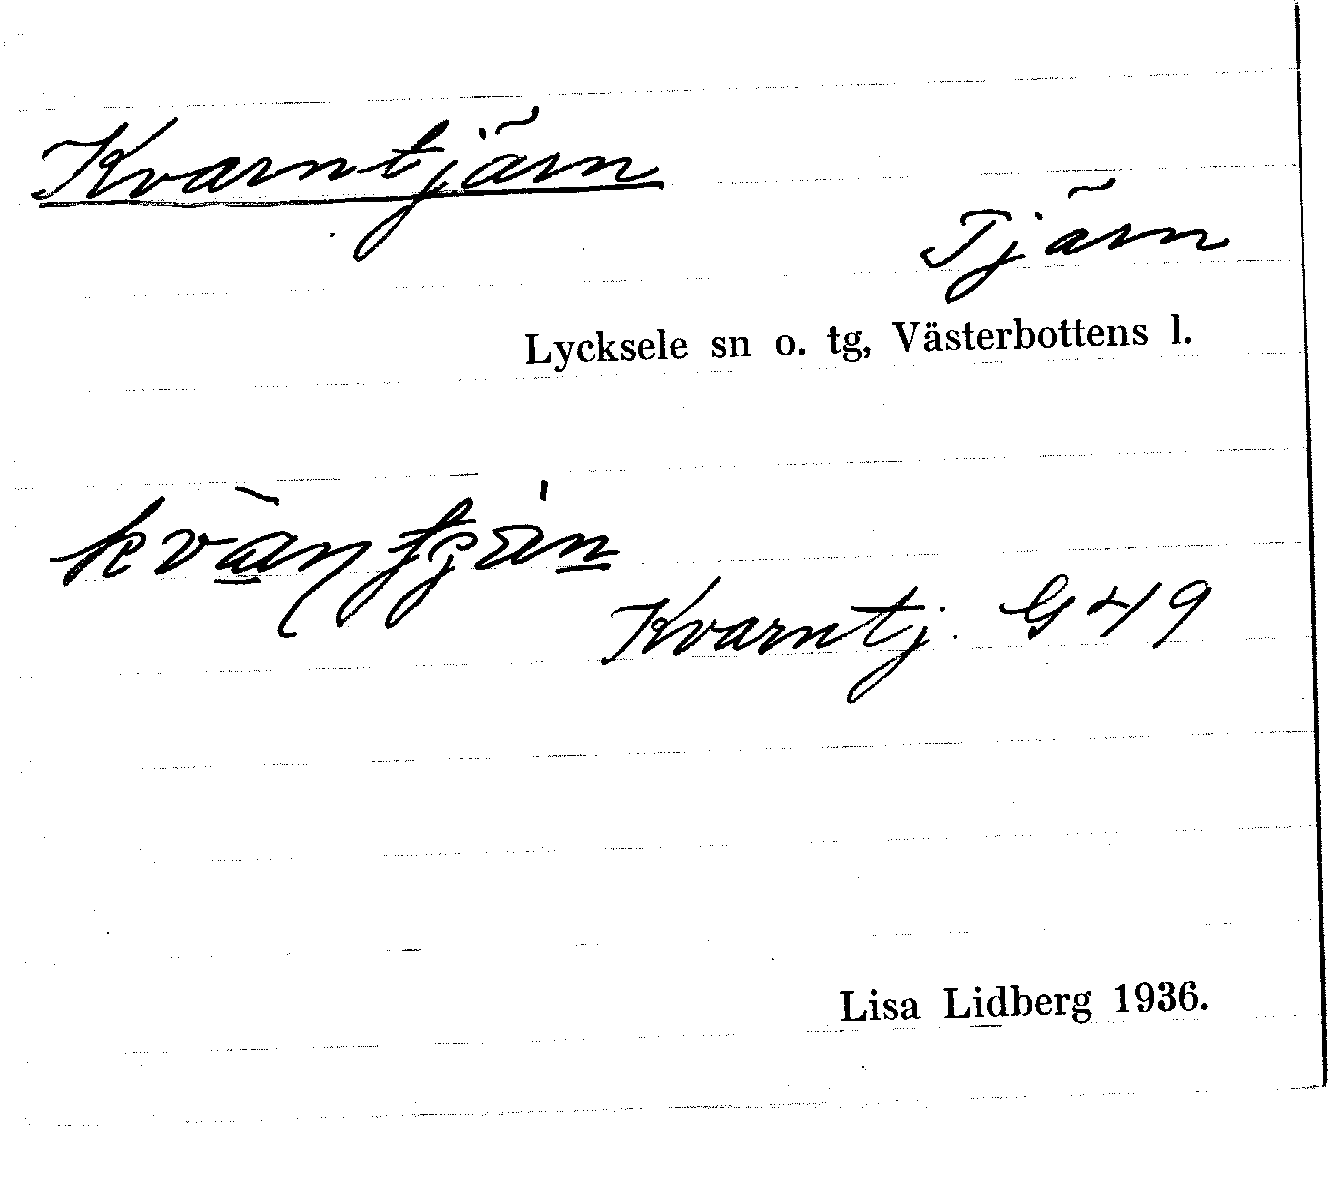 Kvarntjärn
Tjärn
Lycksele sn o. tg, Västerbottens l.
Kvarntj. G 49
Lisa Lidberg 1936.